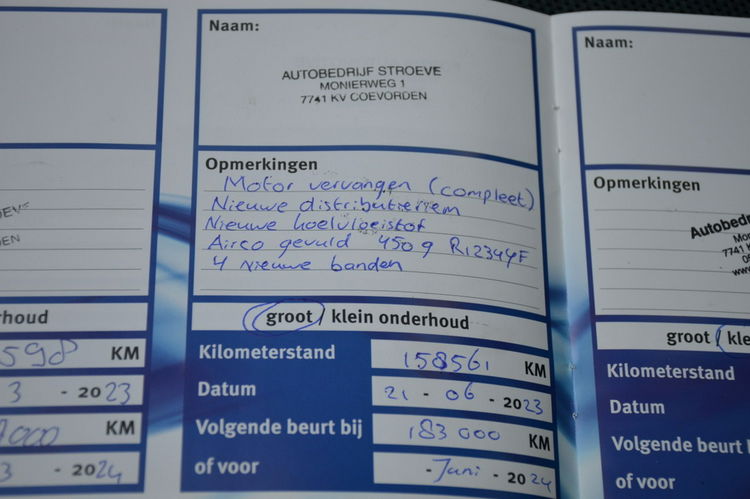 EVE
EN
rhoud
598 KM
3 - 2023
000 KM
3 - 2024
Naam:
AUTOBEDRIJF STROEVE
MONIERWEG 1
7741 KV COEVORDEN
Opmerkingen
Motor vervangen (compleet)
Nieuwe distributieriem
Nieuwe koelvloeistof
Airco gevuld 450 g R1234YF
4 Nieuwe banden
groot / klein onderhoud
Kilometerstand 158561 KM
Datum 21 - 06 - 2023
Volgende beurt bij 183 000 KM
of voor - Juni - 2024
Naam:
Opmerkingen
Autobed
Mo
7741 K
groot / kle
Kilometerstand
Datum
Volgende beurt b
of voor